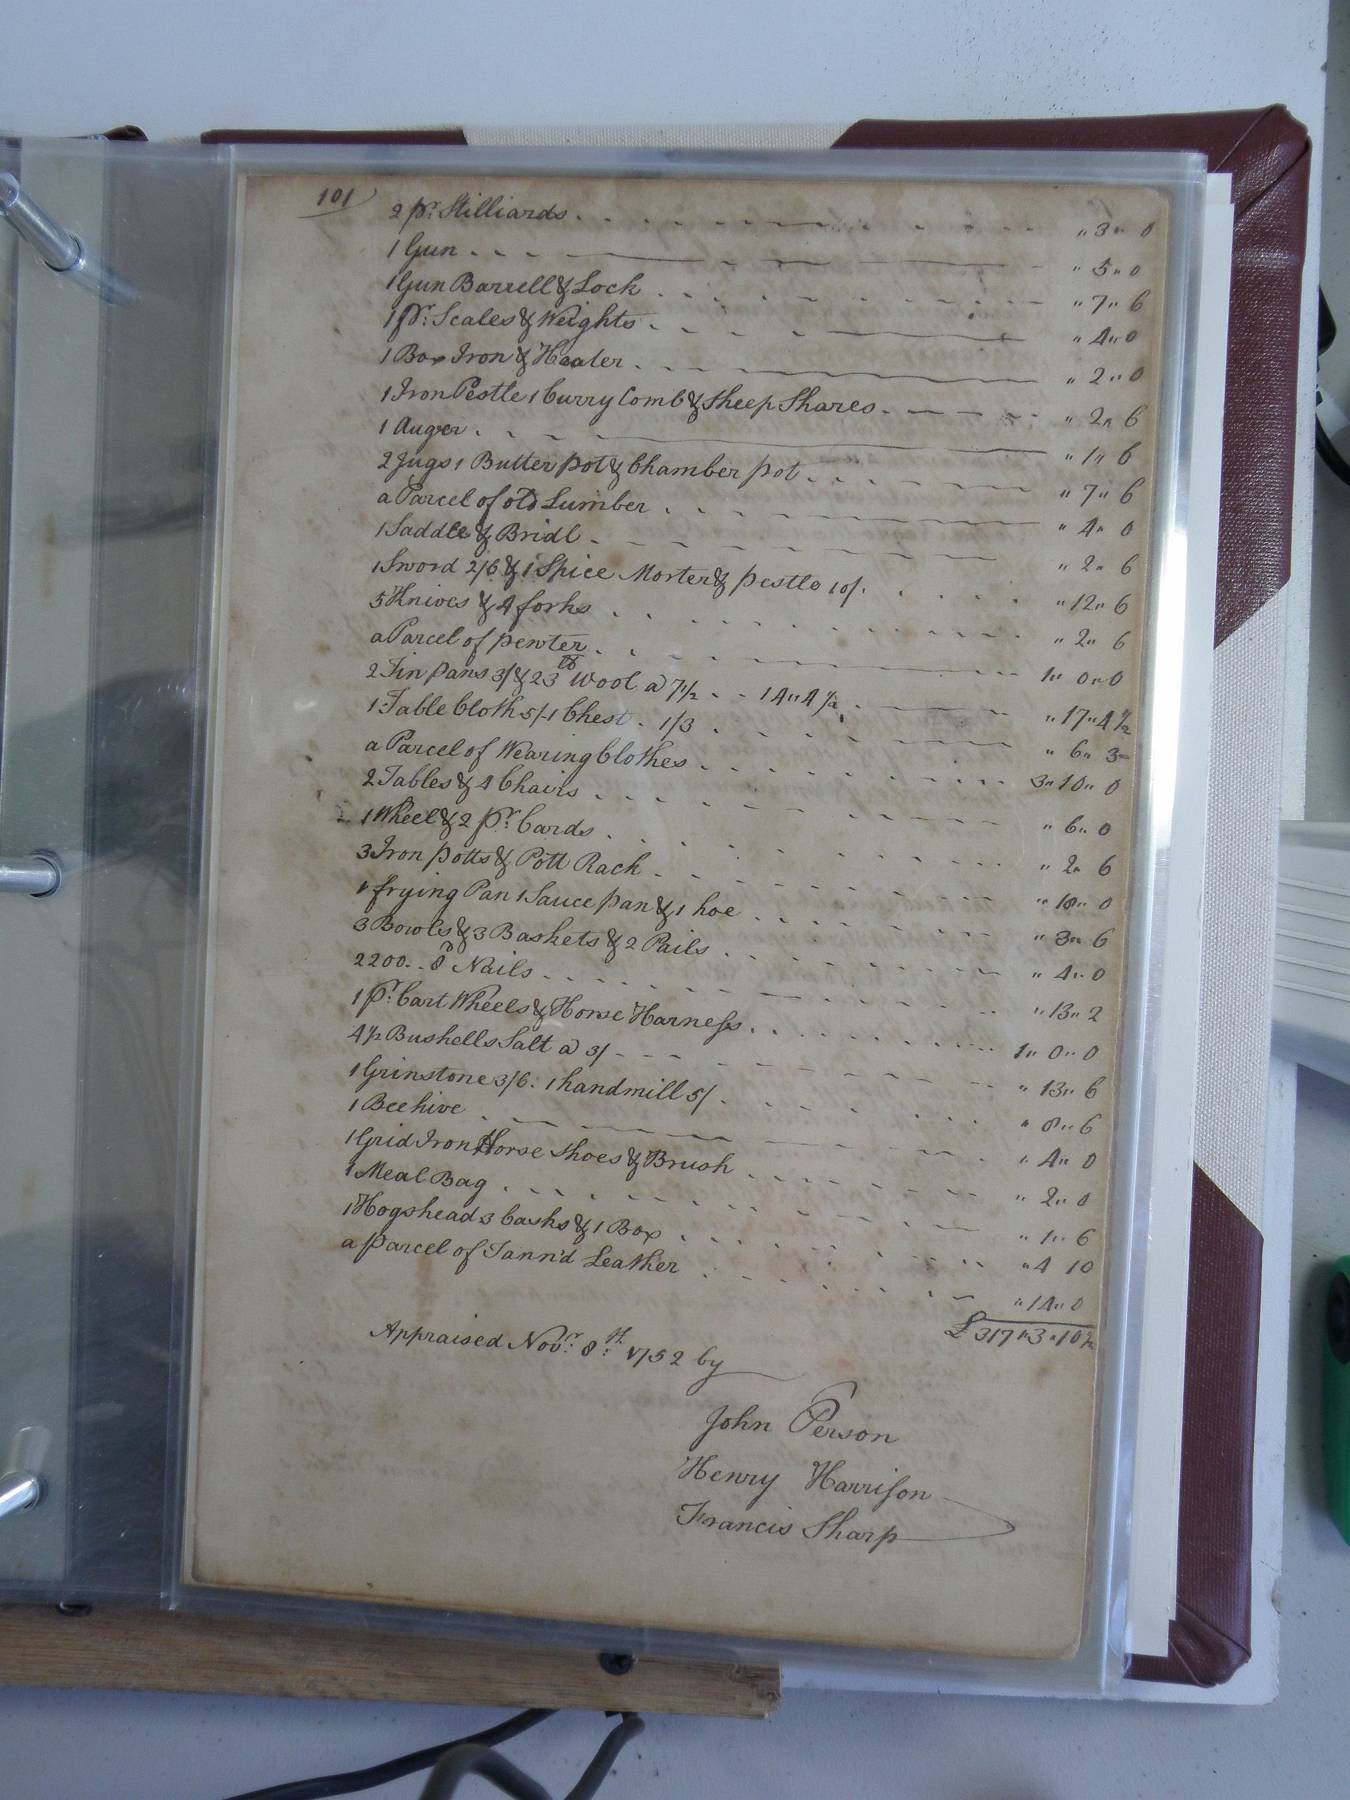 101
2 pr. Stilliards . . . " 3 " 0
1 Gun . . . " 5 " 0
1 Gun Barrell & Lock . . . " 7 " 6
1 pr. Scales & Weights . . . " 4 " 0
1 Box Iron & Heater . . . " 2 " 0
1 Iron Pestle 1 Curry Comb & Sheep Shares . . . " 2 " 6
1 Auger . . . " 1 " 6
2 Jugs 1 Butter pot & Chamber pot . . . " 7 " 6
a Parcel of old Lumber . . . " 4 " 0
1 Saddle & Bridl . . . " 2 " 6
1 Sword 2/6 & 1 Spice Morter & pestle 10/. . . . " 12 " 6
5 Knives & 4 forks . . . " 2 " 6
a Parcel of pewter . . . 1 " 0 " 0
2 Tin pans 3/ & 23 lb Wool a 7½ . . 14 " 4½ . . . " 17 " 4½
1 Table Cloth 5/ 1 Chest . 1/3 . . . " 6 " 3
a Parcel of Wearing Clothes . . . 3 " 10 " 0
2 Tables & 4 Chairs . . . " 6 " 0
1 Wheel & 2 pr. Cards . . . " 2 " 6
3 Iron potts & Pott Rack . . . " 18 " 0
1 frying Pan 1 Sauce pan & 1 hoe . . . " 3 " 6
3 Bowls & 3 Baskets & 2 Pails . . . " 4 " 0
2200 . . 8d Nails . . . " 13 " 2
1 pr. Cart Wheels & Horse Harness . . . 1 " 0 " 0
4½ Bushells Salt a 3/ . . . " 13 " 6
1 Grinstone 3/6 : 1 handmill 5/ . . . " 8 " 6
1 Beehive . . . " 4 " 0
1 Grid Iron Horse Shoes & Brush . . . " 2 " 0
1 Meal Bag . . . " 1 " 6
1 Hogshead 3 Casks & 1 Box . . . " 4 10
a parcel of Tann'd Leather . . . " 14 " 0
£ 317 " 3 " 10½
Appraised Novr. 8th. 1752 by
John Person
Henry Harrison
Francis Sharp